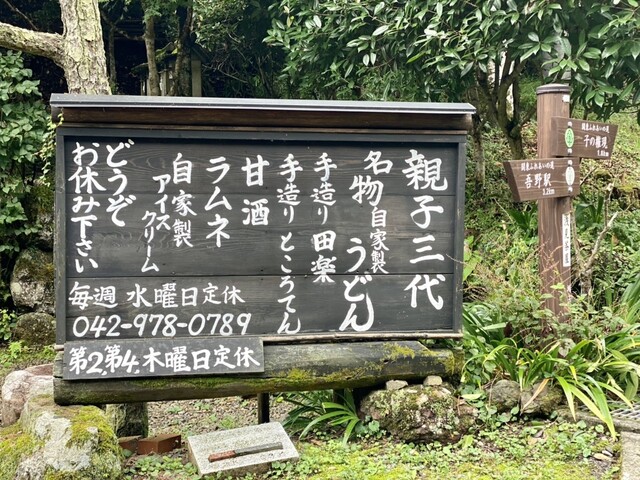 親子三代
名物自家製うどん
手造り田楽
手造りところてん
甘酒
ラムネ
自家製アイスクリーム
どうぞ
お休み下さい
毎週 水曜日定休
042-978-0789
第2.第4.木曜日定休
関東ふれあいの道
子の権現
関東ふれあいの道
吾野駅